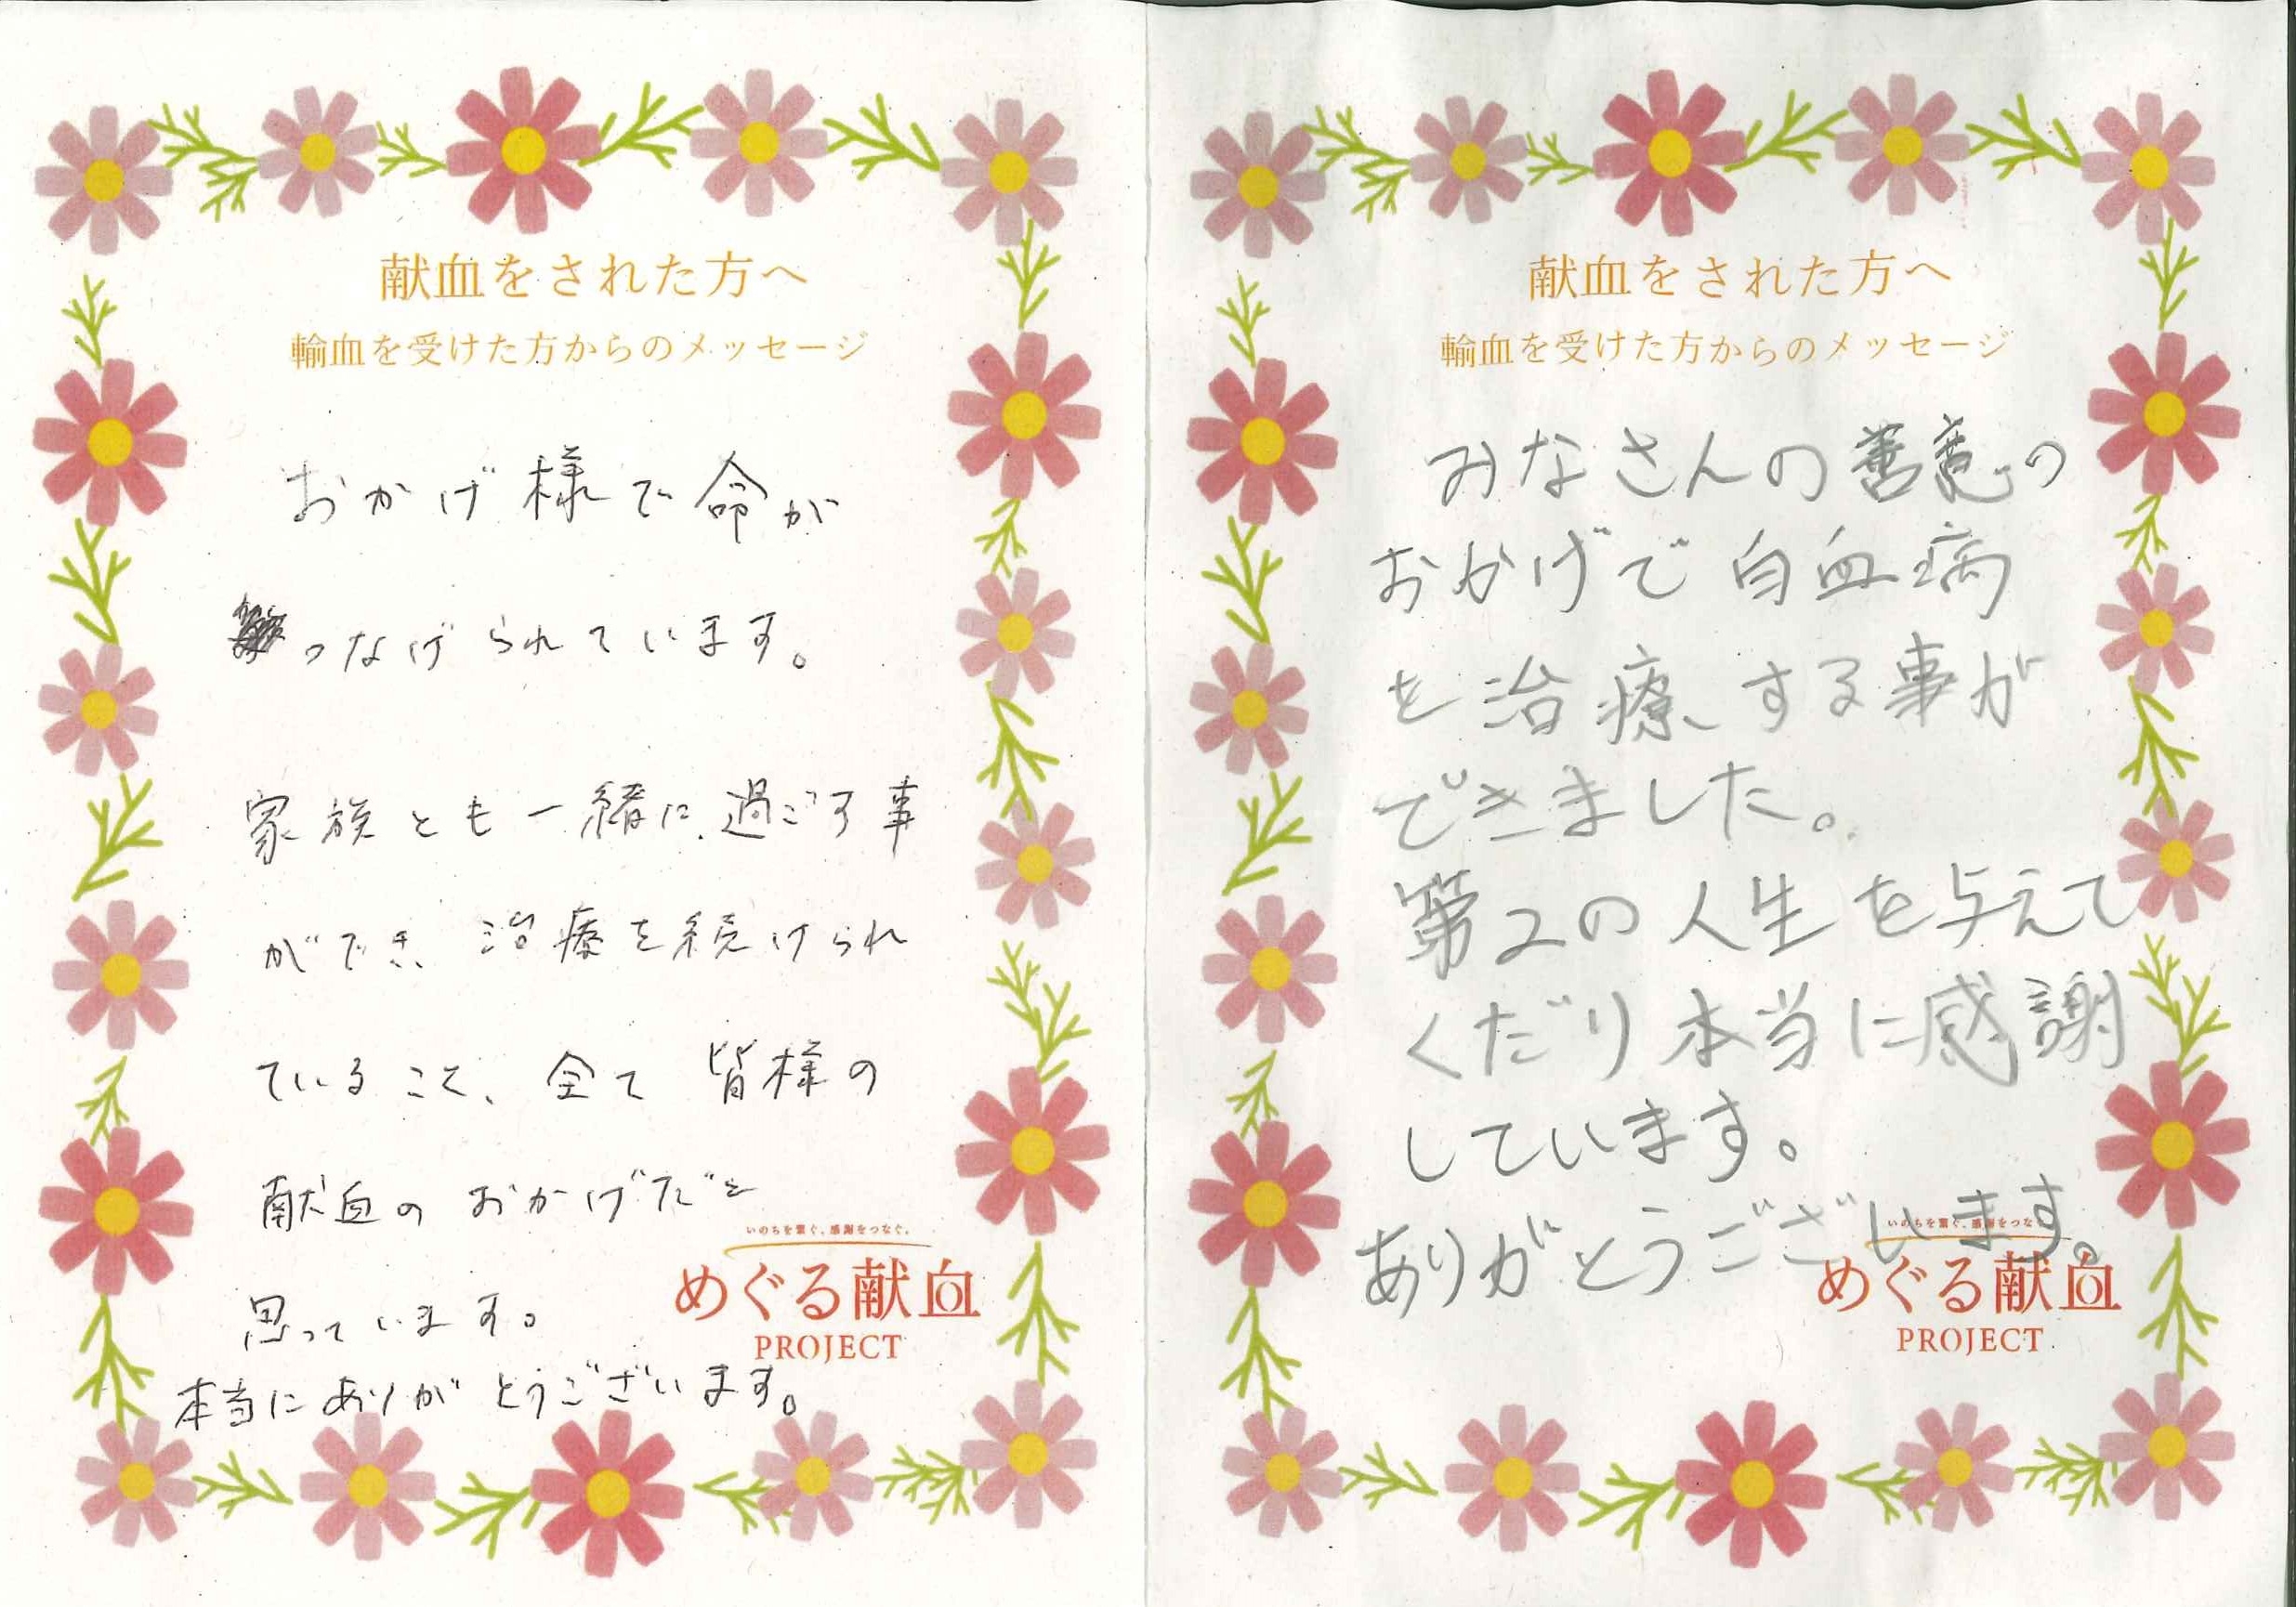 献血をされた方へ
輸血を受けた方からのメッセージ
おかげ様で命が
つなげられています。
家族とも一緒に過ごす事
ができ、治療を続けられ
ていること、全て皆様の
献血のおかげだと
思っています。
本当にありがとうございます。
いのちを繋ぐ、感謝をつなぐ。
めぐる献血
PROJECT
献血をされた方へ
輸血を受けた方からのメッセージ
みなさんの善意の
おかげで白血病
を治療する事が
できました。
第2の人生を与えて
くだり本当に感謝
しています。
ありがとうございます。
いのちを繋ぐ、感謝をつなぐ。
めぐる献血
PROJECT